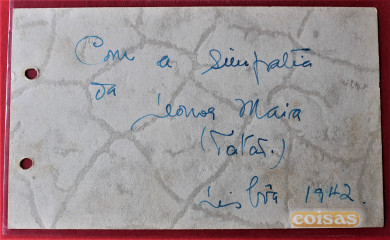 Com a simpatia
da
Leonor Maia
(Tatão.)
Lisbôa 1942.
coisas